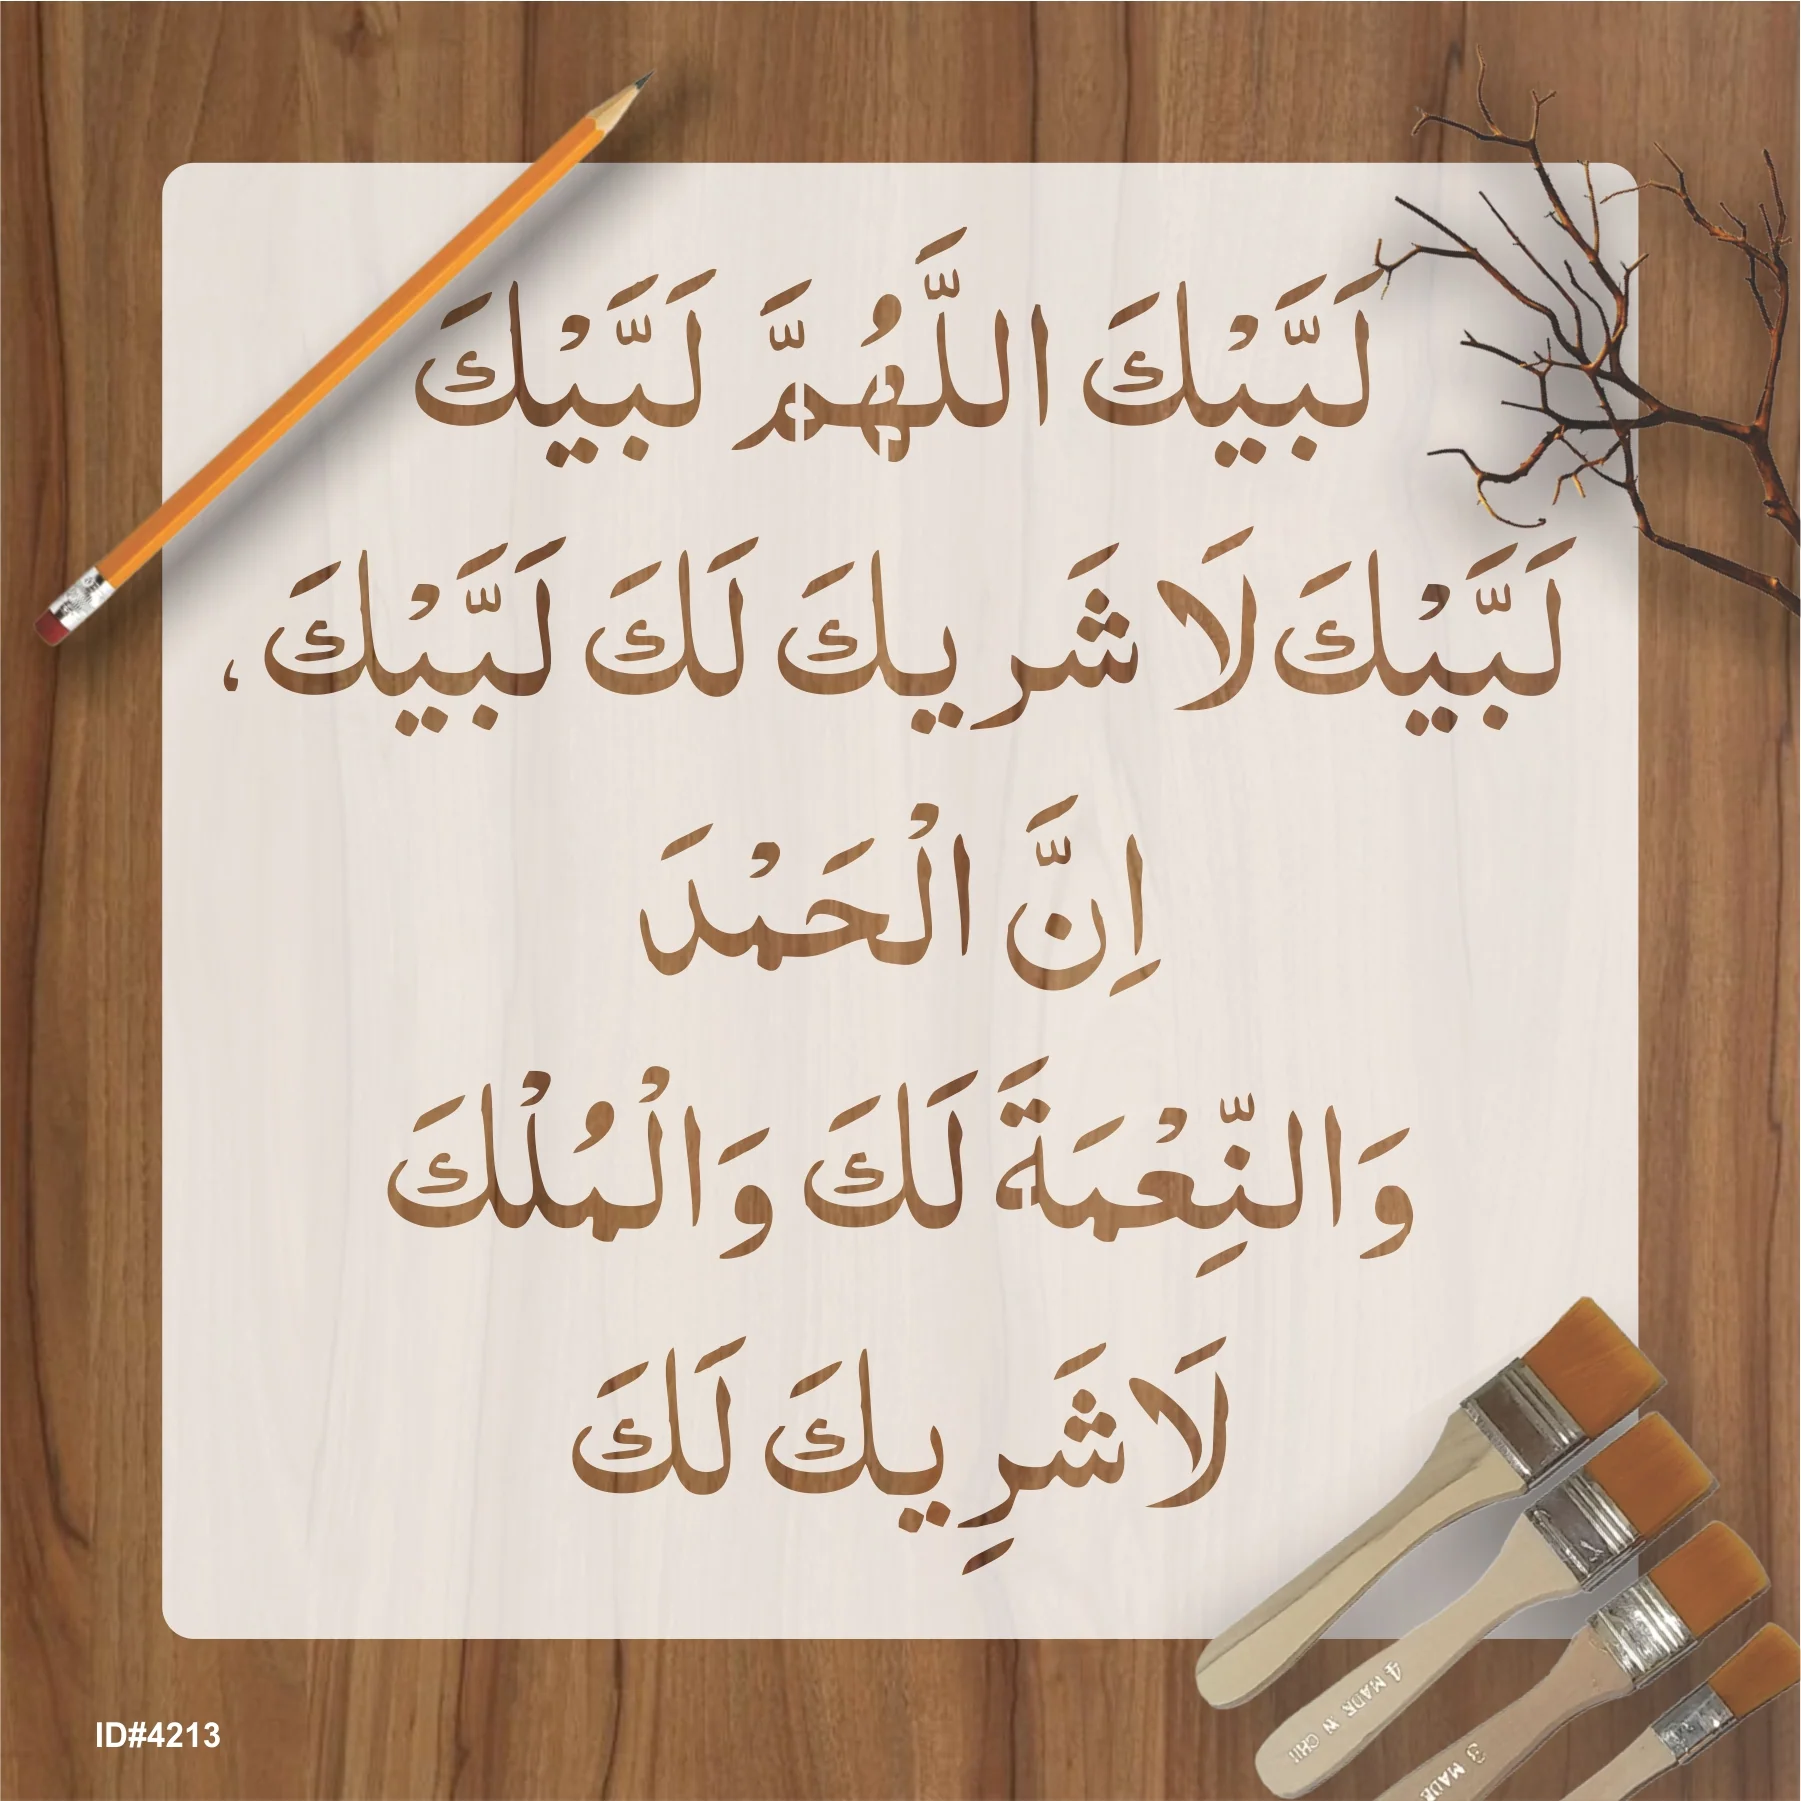 لَبَّيْكَ اللَّهُمَّ لَبَّيْكَ
لَبَّيْكَ لَا شَريكَ لَكَ لَبَّيْكَ،
اِنَّ الْحَمْدَ
وَالنِّعْمَةَ لَكَ وَالْمُلْكَ
لَاشَرِيكَ لَكَ
4 MADE IN CHI
3 MADE
ID#4213